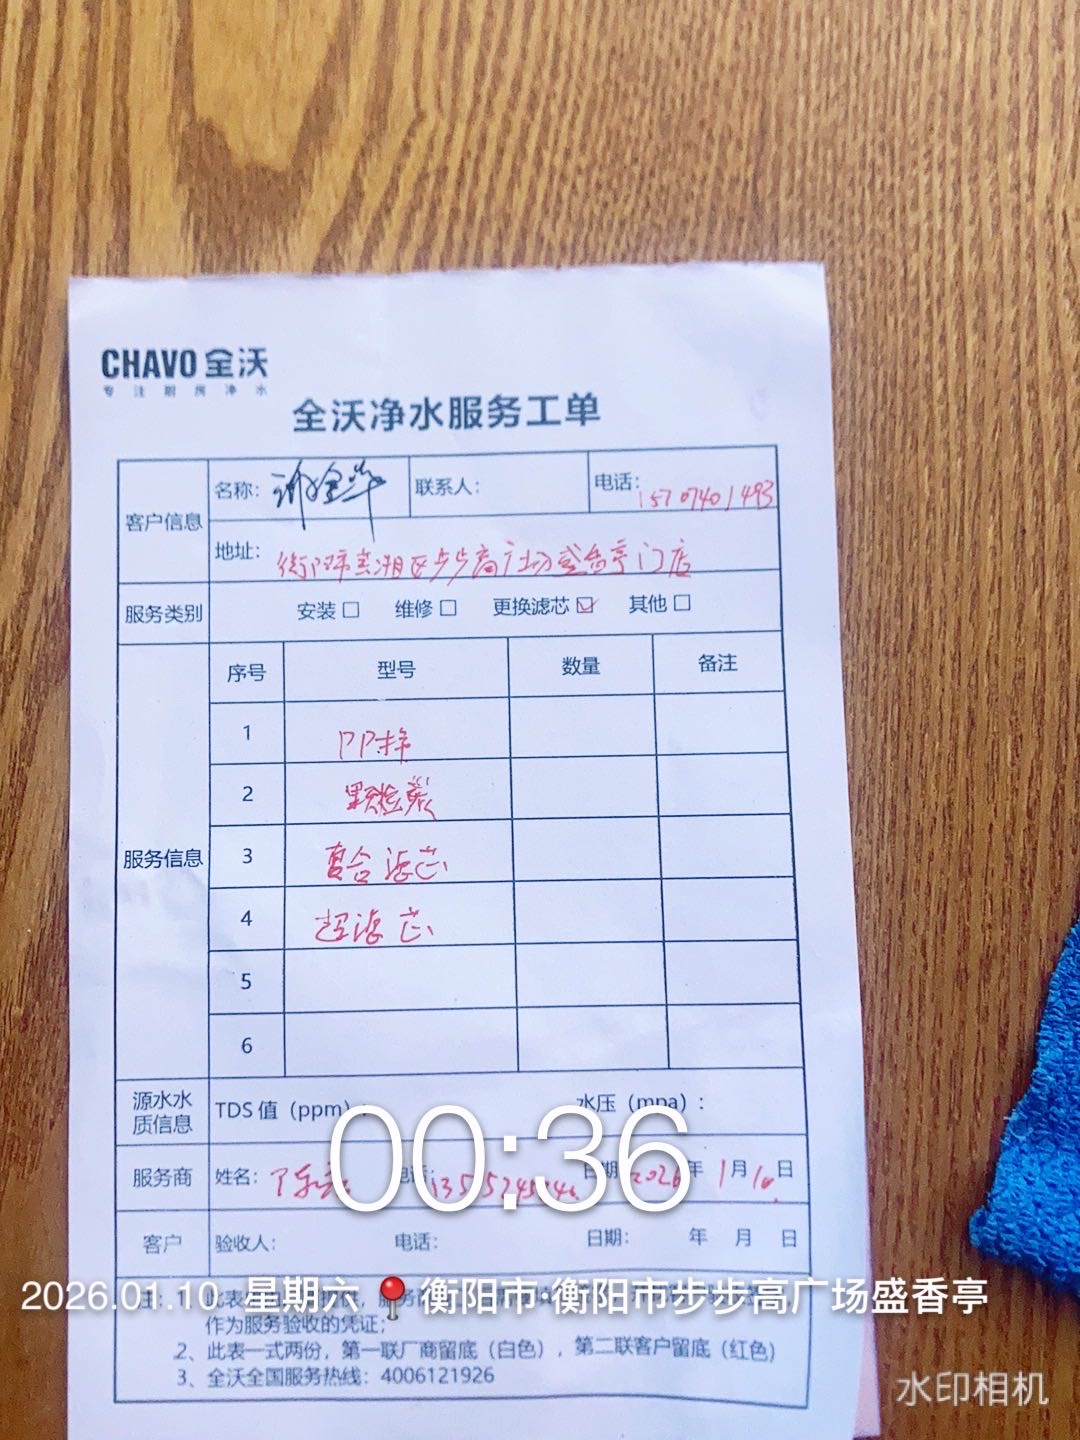 CHAVO 全沃
专注厨房净水
全沃净水服务工单
客户信息
名称: 联系人: 电话: 15707401493
地址: 衡阳市芙湘区步步高广场盛香亭门店
服务类别 安装☐ 维修☐ 更换滤芯☑ 其他☐
服务信息
序号 型号 数量 备注
1 PP棉
2 颗粒炭
3 复合滤芯
4 超滤芯
5
6
源水水质信息 TDS 值（ppm）: 水压（mpa）:
00:36
服务商 姓名: 电话: 日期: 2026年 1月10日
客户 验收人: 电话: 日期: 年 月 日
2026.01.10 星期六 📍衡阳市·衡阳市步步高广场盛香亭
注: 1、此表
作为服务验收的凭证;
2、此表一式两份，第一联厂商留底（白色），第二联客户留底（红色）
3、全沃全国服务热线: 4006121926
水印相机